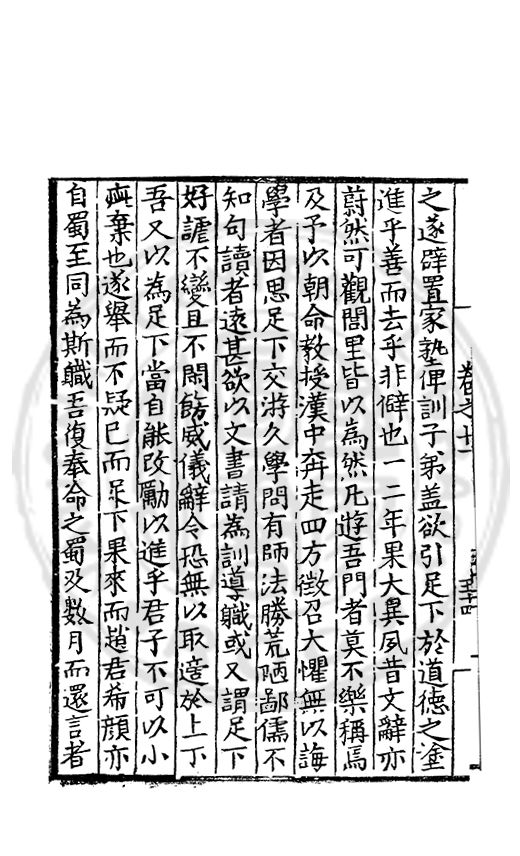 之遂辟置家塾俾訓子弟盖欲引足下於道德之塗
進乎善而去乎非僻也一二年果大異夙昔文辭亦
蔚然可觀閭里皆以為然凡遊吾門者莫不樂稱焉
及予以朝命教授漢中奔走四方徵召大懼無以誨
學者因思足下交游久學問有師法勝荒陋鄙儒不
知句讀者遠甚欲以文書請為訓導職或又謂足下
好謔不變且不閑飭威儀辭令恐無以取適於上下
吾又以為足下當自能改勵以進乎君子不可以小
疵棄也遂舉而不疑已而足下果來而趙君希顔亦
自蜀至同為斯職吾復奉命之蜀及數月而還言者
卷之十一